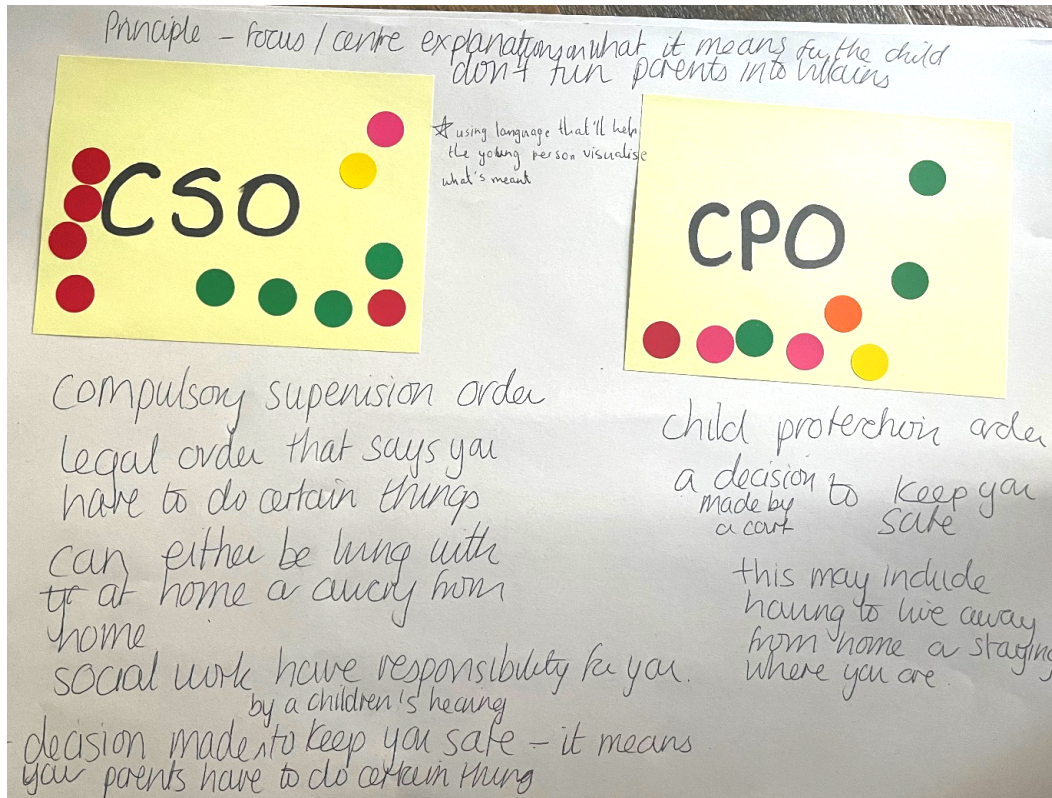 Principle – focus / centre explanations on what it means for the child
don't turn parents into villains
☆ using language that'll help
the young person visualise
what's meant
CSO
compulsory supervision order
legal order that says you
have to do certain things
can either be living with
at home or away from
home
social work have responsibility for you.
by a children's hearing
decision made ^ to keep you safe – it means
your parents have to do certain thing
CPO
child protection order
a decision to keep you
made by
a court
safe
this may include
having to live away
from home or staying
where you are